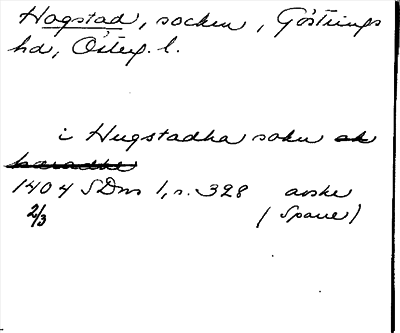 Hogstad, socken, Göstrings
hd, Österg. l.
i Hugstadha sokn ok
haradhe
1404 SDns 1, s. 328 avskr
2/3 (Spaue)